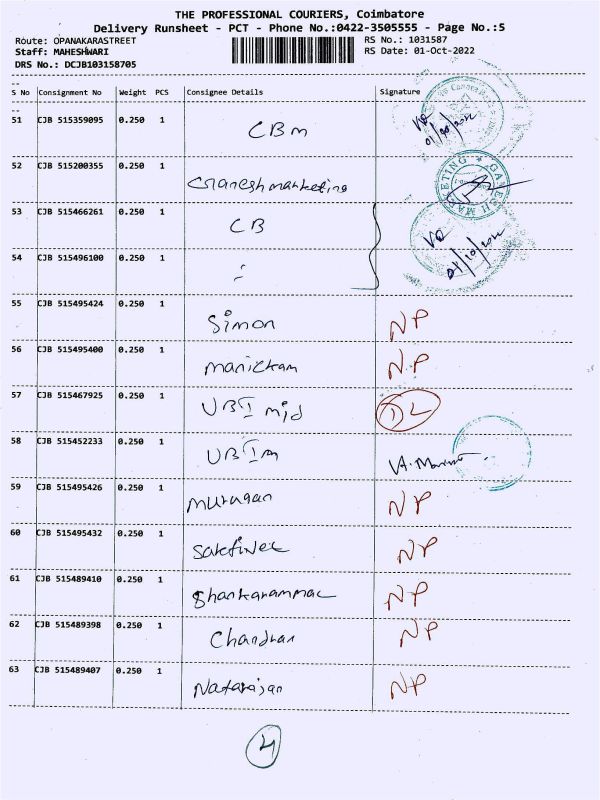 THE PROFESSIONAL COURIERS, Coimbatore
Delivery Runsheet - PCT - Phone No.:0422-3505555 - Page No.:5
Route: OPANAKARASTREET RS No.: 1031587
Staff: MAHESHWARI RS Date: 01-Oct-2022
DRS No.: DCJB103158705
S No Consignment No Weight PCS Consignee Details Signature
51 CJB 515359095 0.250 1 CBM
01/10/2022
52 CJB 515200355 0.250 1 Ganesh marketing
GANESH MARKETING
53 CJB 515466261 0.250 1 CB
54 CJB 515496100 0.250 1
01/10/2022
55 CJB 515495424 0.250 1 Simon NP
56 CJB 515495400 0.250 1 Manickam NP
57 CJB 515467925 0.250 1 UBI mid DL
58 CJB 515452233 0.250 1 UBI m
59 CJB 515495426 0.250 1 Murugan NP
60 CJB 515495432 0.250 1 NP
61 CJB 515489410 0.250 1 NP
62 CJB 515489398 0.250 1 Chandran NP
63 CJB 515489407 0.250 1 Natarajan NP
4